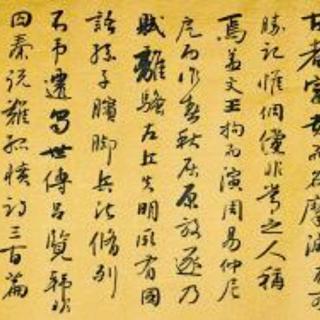 古者富貴而名摩滅不可
勝記惟倜儻非常之人稱
焉蓋文王拘而演周易仲尼
厄而作春秋屈原放逐乃
賦離騷左丘失明厥有國
語孫子臏腳兵法脩列
不韋遷蜀世傳呂覽韓非
囚秦說難孤憤詩三百篇